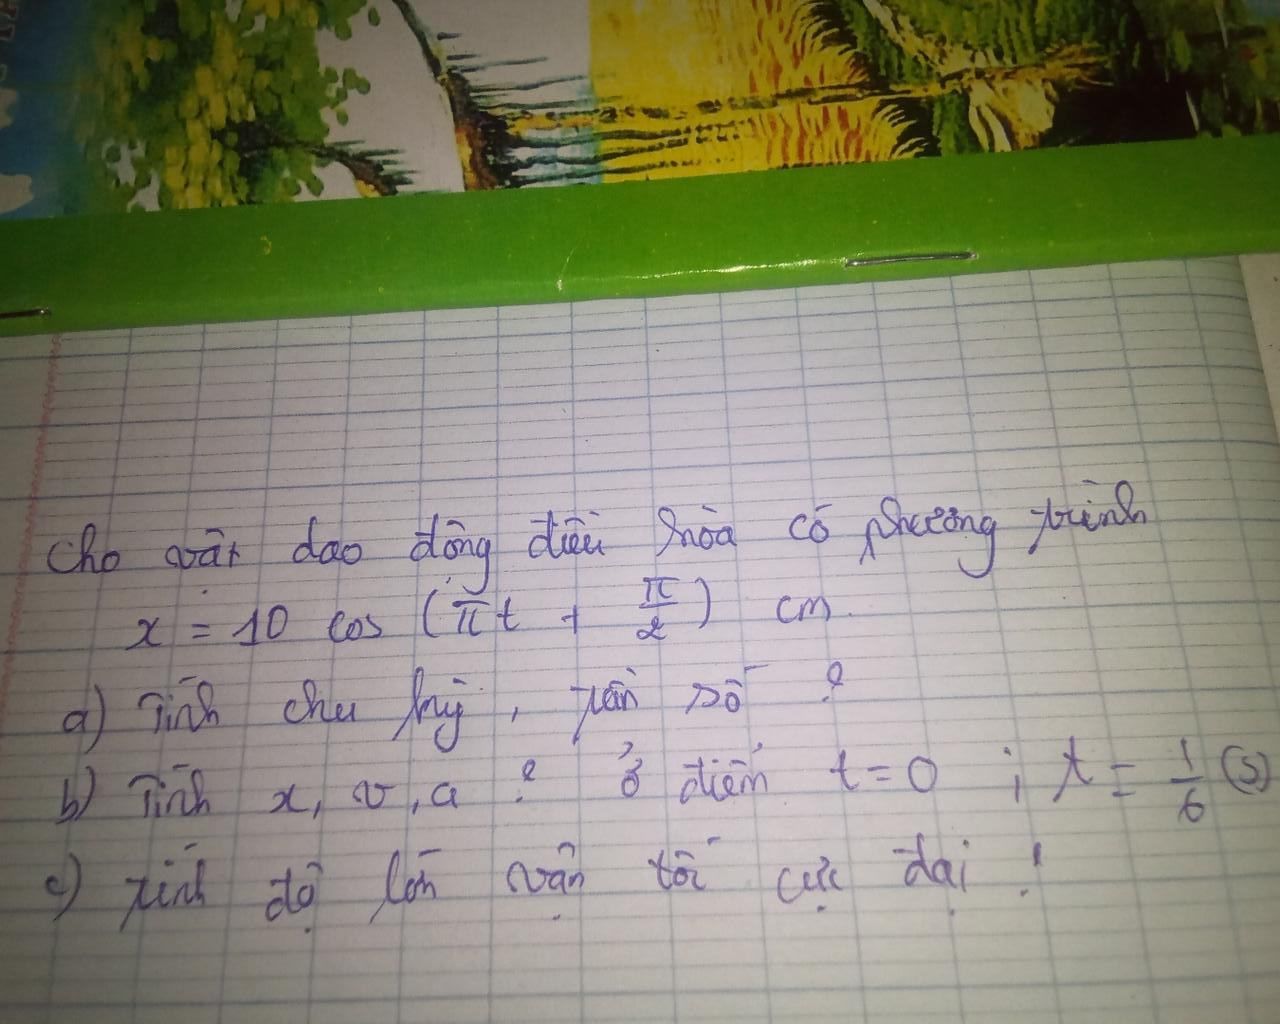 Cho vật dao động điều hòa có phương trình
x = 10 cos (πt + π/2) cm.
a) Tính chu kỳ, tần số ?
b) Tính x, v, a ? ở điểm t = 0 ; t = 1/6 (s)
c) tính độ lớn vận tốc cực đại !